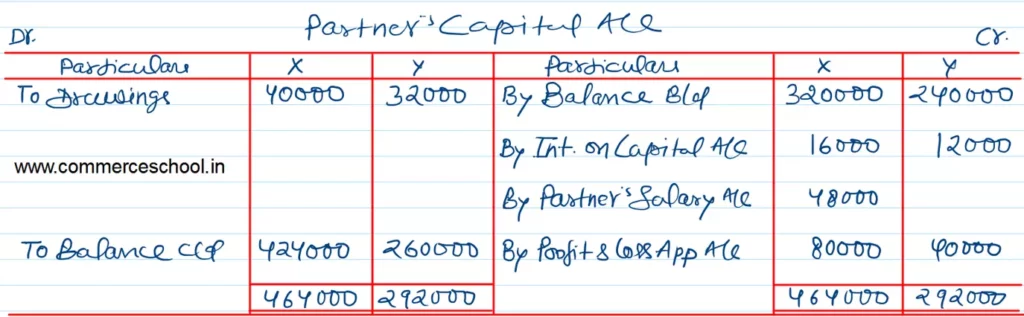 Partner's Capital A/c
Dr. Cr.
Particulars X Y Particulars X Y
To Drawings 40000 32000 By Balance B/d 320000 240000
By Int. on Capital A/c 16000 12000
www.commerceschool.in
By Partner's Salary A/c 48000
To Balance c/d 424000 260000 By Profit & Loss App A/c 80000 40000
464000 292000 464000 292000